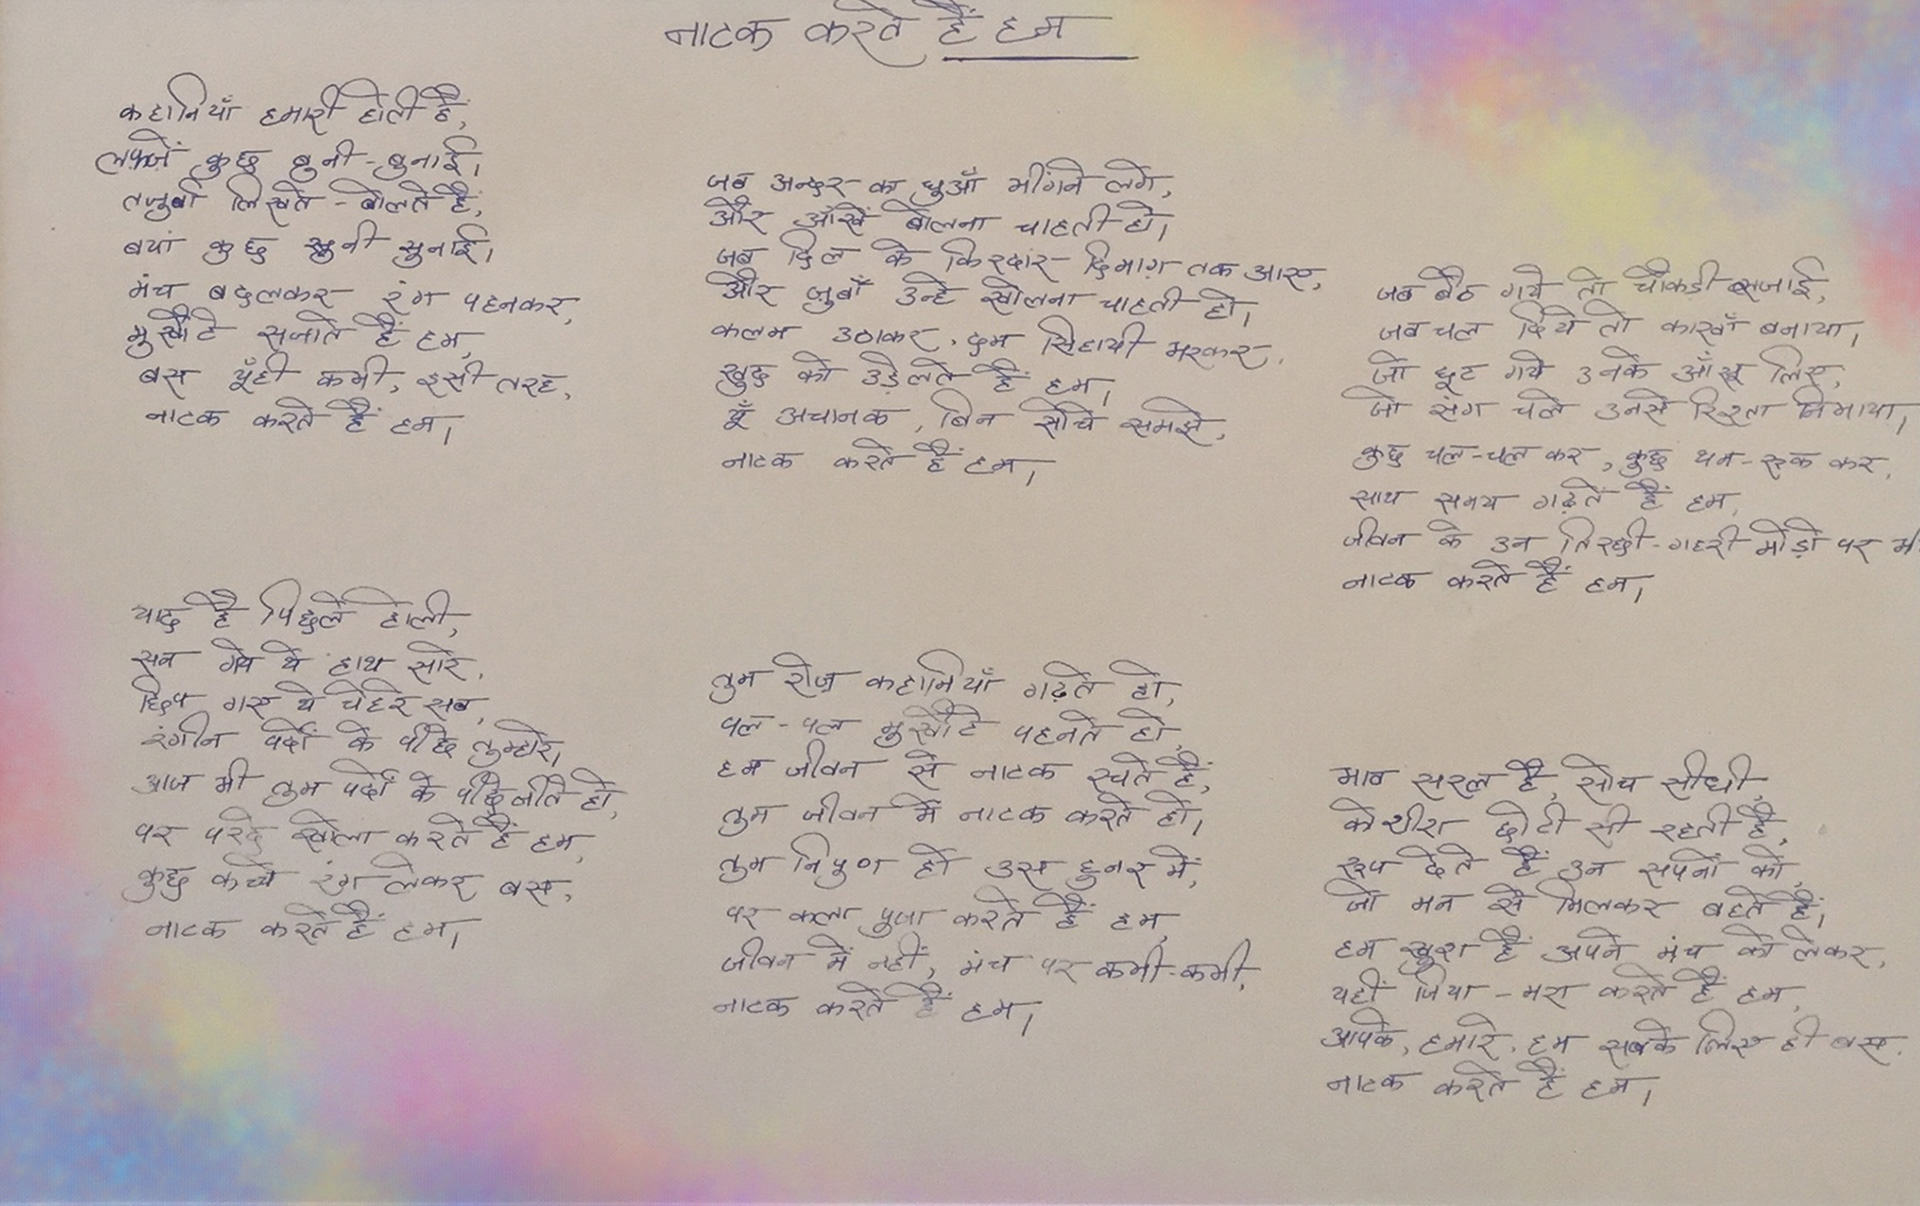 नाटक करते हैं हम
कहानियाँ हमारी होती हैं,
लफ्जें कुछ बुनी-बुनाई,
तजुर्बा लिखते-बोलते हैं,
बयां कुछ सुनी सुनाई।
मंच बदलकर रंग पहनकर,
मुखौटे सजाते हैं हम,
बस यूँही कभी, इसी तरह,
नाटक करते हैं हम।
याद है पिछले होली,
सन गये थे हाथ सारे,
छिप गए थे चेहरे सब,
रंगीन पर्दों के पीछे तुम्हारे।
आज भी तुम पर्दों के पीछे जीते हो,
पर परदे खोला करते हैं हम,
कुछ कच्चे रंग लेकर बस,
नाटक करते हैं हम।
जब अन्दर का धुआँ भींगने लगे,
और आँखें बोलना चाहती हो।
जब दिल के किरदार दिमाग़ तक आए,
और ज़ुबाँ उन्हे खोलना चाहती हो।
कलम उठाकर, दम सिहायी भरकर,
ख़ुद को उड़ेलते हैं हम।
यूँ अचानक, बिन सोचे समझे,
नाटक करते हैं हम।
तुम रोज़ कहानियाँ गढ़ते हो,
पल-पल मुखौटे पहनते हो,
हम जीवन से नाटक रचते हैं,
तुम जीवन में नाटक करते हो।
तुम निपुण हो उस हुनर में,
पर कला पूजा करते हैं हम,
जीवन में नहीं, मंच पर कभी-कभी,
नाटक करते हैं हम।
जब बैठ गये तो चौकड़ी सजाई,
जब चल दिये तो कारवाँ बनाया,
जो छूट गये उनके आँसू लिए,
जो संग चले उनसे रिश्ता निभाया।
कुछ चल-चल कर, कुछ थम-रुक कर,
साथ समय गढ़ते हैं हम,
जीवन के उन तिरछी-गहरी मोड़ों पर
नाटक करते हैं हम।
भाव सरल है, सोच सीधी,
कोशीश छोटी सी रहती है,
रूप देते हैं उन सपनों को,
जो मन से मिलकर बहते हैं।
हम खुश हैं अपने मंच को लेकर,
यहीं जिया-मरा करते हैं हम,
आपके, हमारे, हम सबके लिए ही बस,
नाटक करते हैं हम।